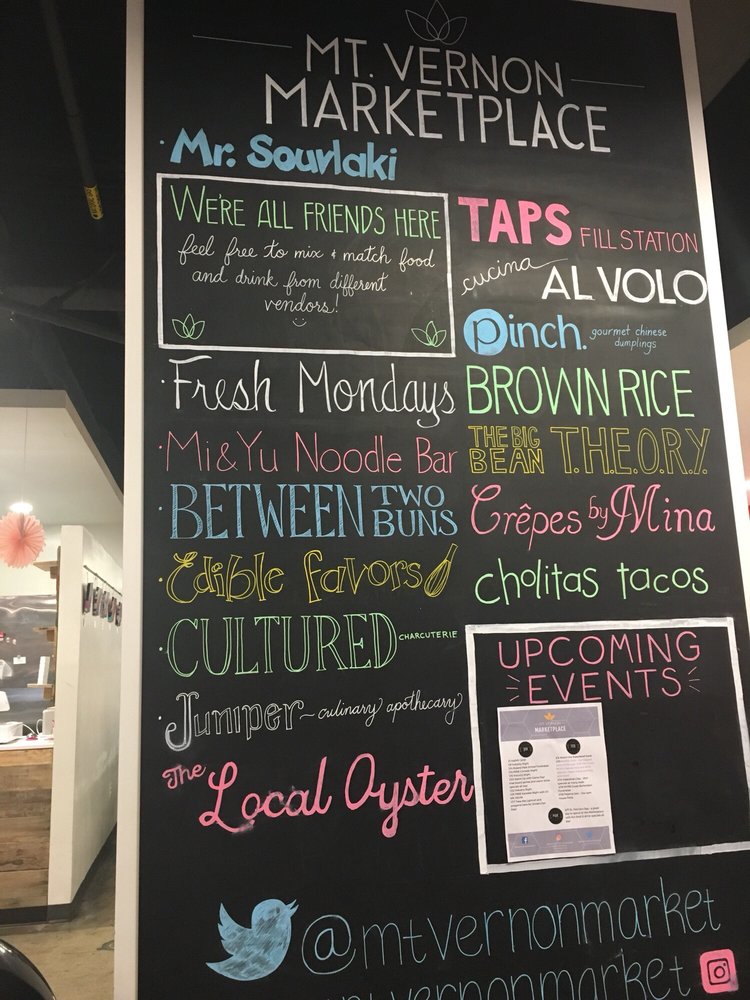 MT. VERNON
MARKETPLACE
· Mr. Souvlaki
WE'RE ALL FRIENDS HERE
feel free to mix & match food
and drink from different
vendors!
· Fresh Mondays
· Mi & Yu Noodle Bar
· BETWEEN TWO
BUNS
· Edible favors
· CULTURED CHARCUTERIE
· Juniper ~ culinary apothecary
The Local Oyster
TAPS FILL STATION
cucina AL VOLO
pinch. gourmet chinese
dumplings
BROWN RICE
THE BIG
BEAN T.H.E.O.R.Y.
Crêpes by Mina
cholitas tacos
UPCOMING
EVENTS
MT. VERNON
MARKETPLACE
@mtvernonmarket
vernonmarket